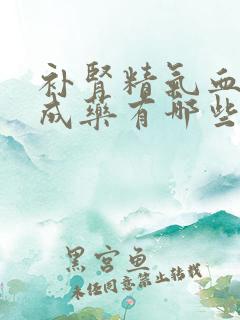 补肾精气血
成药有哪些
黑宫鱼
未经同意禁止转载